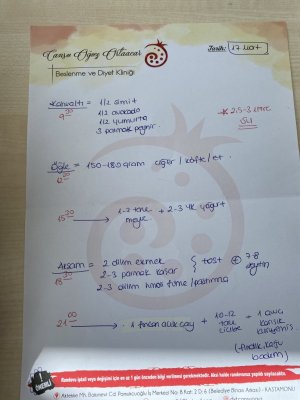 Cansu Oğuz Ortaacar
Beslenme ve Diyet Kliniği
Tarih: 17 Mart
Kahvaltı = 1/2 simit
9:30
1/2 avokado
1/2 yumurta
3 parmak peynir
2.5-3 litre
SU
Öğle = 150-180 gram ciğer / köfte / et.
15:30 → 1-2 tane meyve + 2-3 yk yoğurt
Akşam = 2 dilim ekmek
2-3 parmak kaşar
2-3 dilim füme / pastırma
} tost + 7-8 zeytin
21:00 → 1 fincan açık çay + 10-12 tane + 1 avuç karışık kuruyemiş
(fındık, kaju badem)
ÖNEMLİ
Randevu iptali veya değişimi için en az 1 gün önceden bilgi verilmesi gerekmektedir. Aksi halde randevunuz yapıldı sayılacaktır.
No:8 Kat: 2 D: 6 (Belediye Binası Arkası) - KASTAMONU